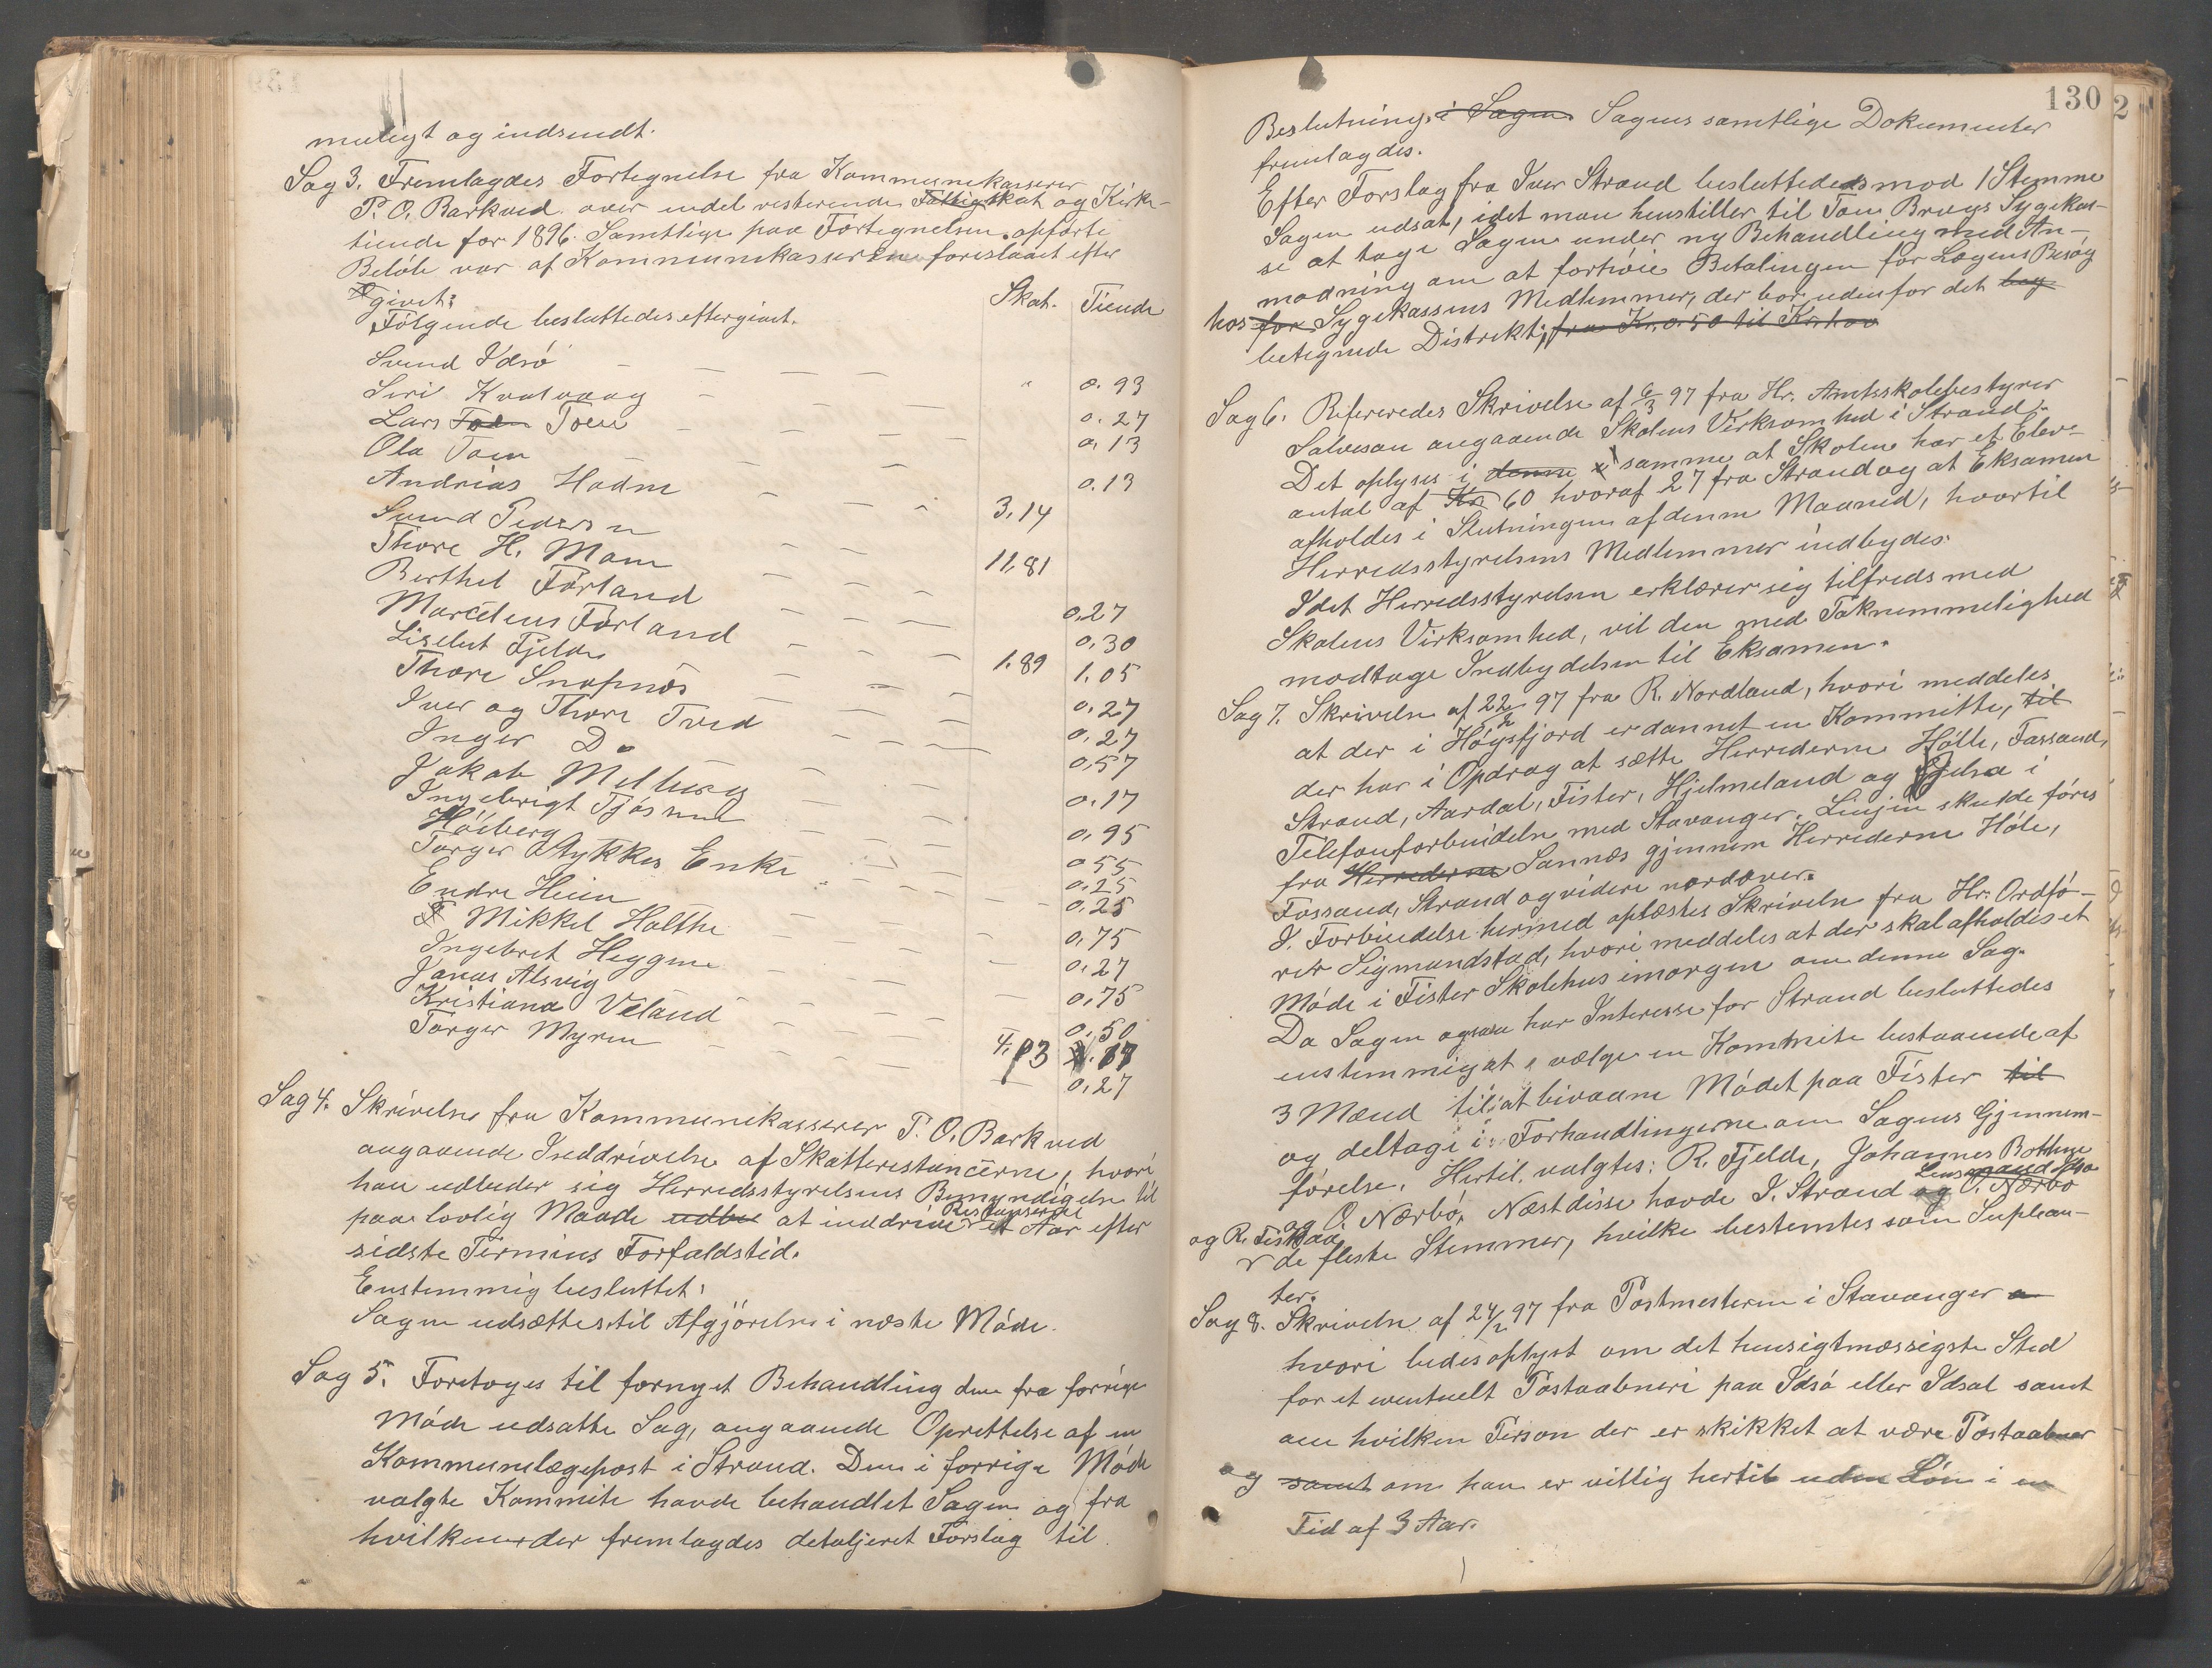 muligt og indsendt.
Sag 3. Fremlagdes Fortegnelse fra Kommunekasserer
P. O. Barkved over endel resterende Fattigskat og Kirke-
tiende for 1896. Samtlige paa Fortegnelsen opførte
Beløb var af Kommunekassereren foreslaaet efter
givet:
Skat. Tiende
Følgende besluttedes eftergivet.
Svend Idsö
Siri Kvalvaag " 0.93
Lars Toen Toen 0.27
Ola Toen 0,13
Andreas Hadne 0.13
Svend Pedersen 3,14
Thore H. Moen 11,81
Berthel Førland
Marcelius Førland 0,27
Liselut Fjelde 0,30
Thore Snopnæs 1.89 1,05
Iver og Thore Tved 0,27
Inger Do 0,27
Jakob Meltveng 0,57
Ingebrigt Tjøsnne 0,17
Høiberg 0,95
Torger Stykkes Enke 0 55
Endre Heien 0,25
Mikkel Holthe 0,25
Ingebret Heggene 0,75
Jonas Alsvig 0,27
Kristiana Veland 0,75
Torger Myren 0,50
4,13
0,27
Sag 4. Skrivelse fra Kommunekasserer P. O. Barkved
angaaende Inddrivelse af Skatterestancerne, hvori
han udbeder sig Herredsstyrelsens Bemyndigelse til
paa lovlig Maade udbe at inddrive Restancerne et Aar efter
sidste Termins Forfaldstid.
Enstemmig besluttet:
Sagen udsættes til Afgjörelse i næste Möde.
Sag 5. Foretoges til fornyet Behandling den fra forrige
Möde udsatte Sag, angaaende Oprettelse af en
Kommunelægepost i Strand. Den i forrige Möde
valgte Kommite havde behandlet Sagen og fra
hvilken der fremlagdes detaljeret Forslag til
130
Beslutning i Sagen Sagens samtlige Dokumenter
fremlagdes.
Efter Forslag fra Iver Strand besluttedes mod 1 Stemme
Sagen udsat, idet man henstiller til Tou Brugs Sygekas-
se at tage Sagen under ny Behandling med An-
modning om at forhøie Betalingen for Lægens Besøg
hos for Sygekassens Medlemmer, der bor udenfor det beg
betegnede Distrikt, fra Kr. 0.50 til Kr.
Sag 6. Refereredes Skrivelse af 6/3 97 fra Hr. Amtsskolebestyrer
Salvesan angaaende Skolens Virksomhed i Strand.
Det oplyses i denne i samme at Skolen har et Elev-
antal af Kr. 60 hvoraf 27 fra Strand og at Eksamen
afholdes i Slutningen af denne Maaned, hvortil
Herredsstyrelsens Medlemmer indbydes.
Idet Herredsstyrelsen erklærer sig tilfreds med
Skolens Virksomhed, vil den med Taknemmelighed
modtage Indbydelsen til Eksamen.
Sag 7. Skrivelse af 22/2 97 fra R. Nordland, hvori meddeles
at der i Högsfjord er dannet en Kommitte, til
der har i Opdrag at sætte Herrederne Hölle, Fossand,
Strand, Aardal, Fister, Hjelmeland og Jelsa i
Telefonforbindelse med Stavanger. Linjen skulde føres
fra Herrederne Sannæs gjennem Herrederne Höle,
Fossand, Strand og videre nordover.
I Forbindelse hermed oplæstes Skrivelse fra Hr. Ordfö-
rer Sigmundstad, hvori meddeles at der skal afholdes et
Möde i Fister Skolehus imorgen om denne Sag.
Da Sagen ogsaa har Interesse for Strand besluttedes
enstemmig at vælge en Kommite bestaaende af
3 Mænd til at bivaane Mödet paa Fister til
og deltage i Forhandlingerne om Sagens Gjennem-
førelse. Hertil valgtes: R. Fjelde, Johannes Bothne
og O. Nærbö, Næst disse havde I. Strand og Lensmand Idsø O. Nærbö
og R. Fiskaa
de fleste Stemmer, hvilke bestemtes som Suplean-
ter.
Sag 8. Skrivelse af 24/2 97 fra Postmesteren i Stavanger
hvori bedes oplyst om det hensigtmæssigste Sted
for et eventuelt Postaabneri paa Idsö eller Idsal samt
om hvilken Person der er skikket at være Postaabner
og samt om han er villig hertil uden Lön i en
Tid af 3 Aar.